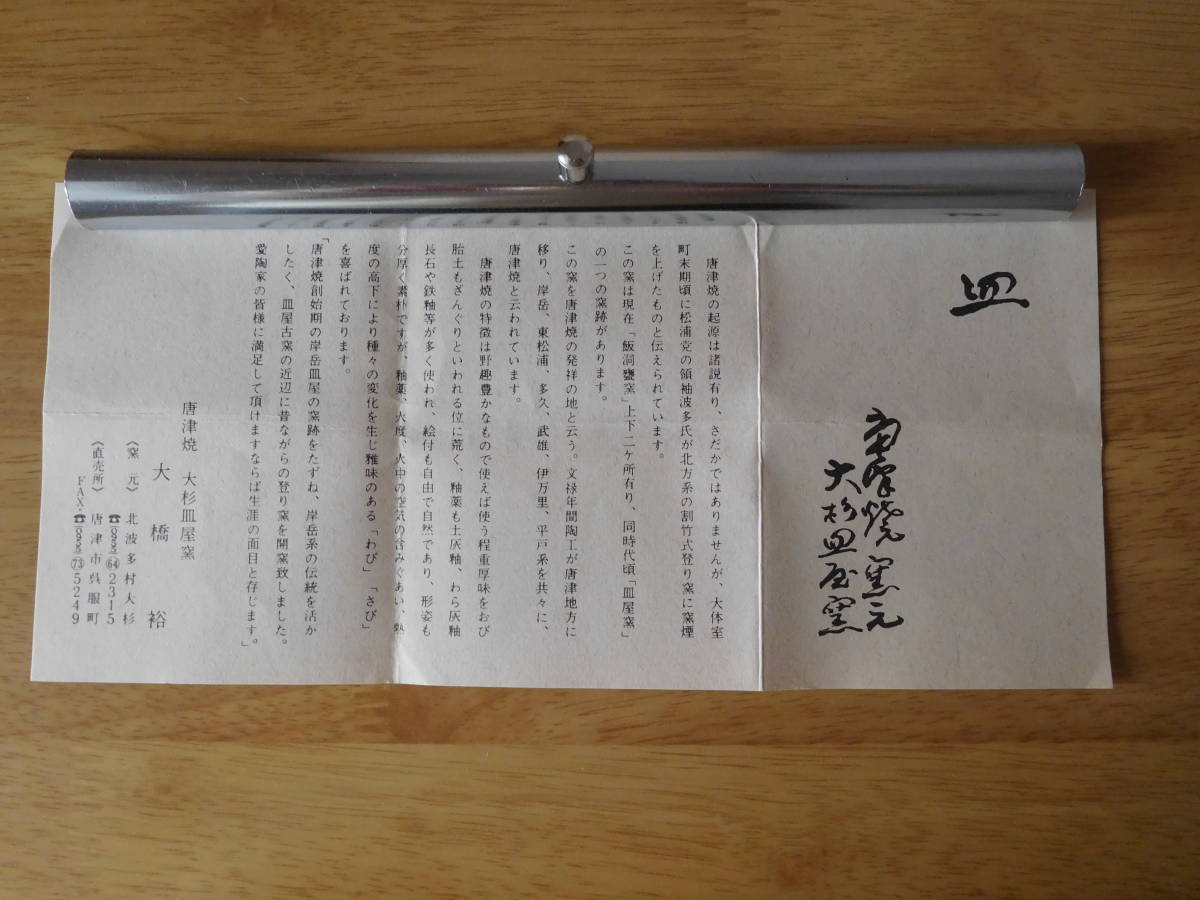 皿
唐津焼窯元
大杉皿屋窯
唐津焼の起源は諸説有り、さだかではありませんが、大体室
町末期頃に松浦党の領袖波多氏が北方系の割竹式登り窯に窯煙
を上げたものと伝えられています。
この窯は現在「飯洞甕窯」上下二ケ所有り、同時代頃「皿屋窯」
の一つの窯跡があります。
この窯を唐津焼の発祥の地と云う。文禄年間陶工が唐津地方に
移り、岸岳、東松浦、多久、武雄、伊万里、平戸系を共々に、
唐津焼と云われています。
唐津焼の特徴は野趣豊かなもので使えば使う程重厚味をおび
胎土もざんぐりといわれる位に荒く、釉薬も土灰釉、わら灰釉
長石や鉄釉等が多く使われ、絵付も自由で自然であり、形姿も
分厚く素朴ですが、釉薬、火度、火中の空気の含みぐあい、熱
度の高下により種々の変化を生じ雅味のある「わび」「さび」
を喜ばれております。
「唐津焼創始期の岸岳皿屋の窯跡をたずね、岸岳系の伝統を活か
したく、皿屋古窯の近辺に昔ながらの登り窯を開窯致しました。
愛陶家の皆様に満足して頂けますならば生涯の面目と存じます。」
唐津焼 大杉皿屋窯
大橋裕
〈窯元〉 北波多村大杉
☎(0955)(64)2315
〈直売所〉 唐津市呉服町
FAX・☎(0955)(73)5249